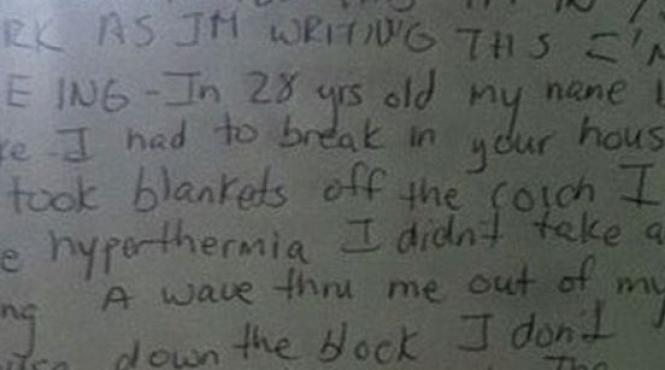 RK AS IM WRITING THIS I'M
E ING - Im 28 yrs old my name i
ke I had to break in your hous
took blankets off the coich I
e hyperthermia I didn't take a
ng A wave thru me out of my
down the block I don't
The